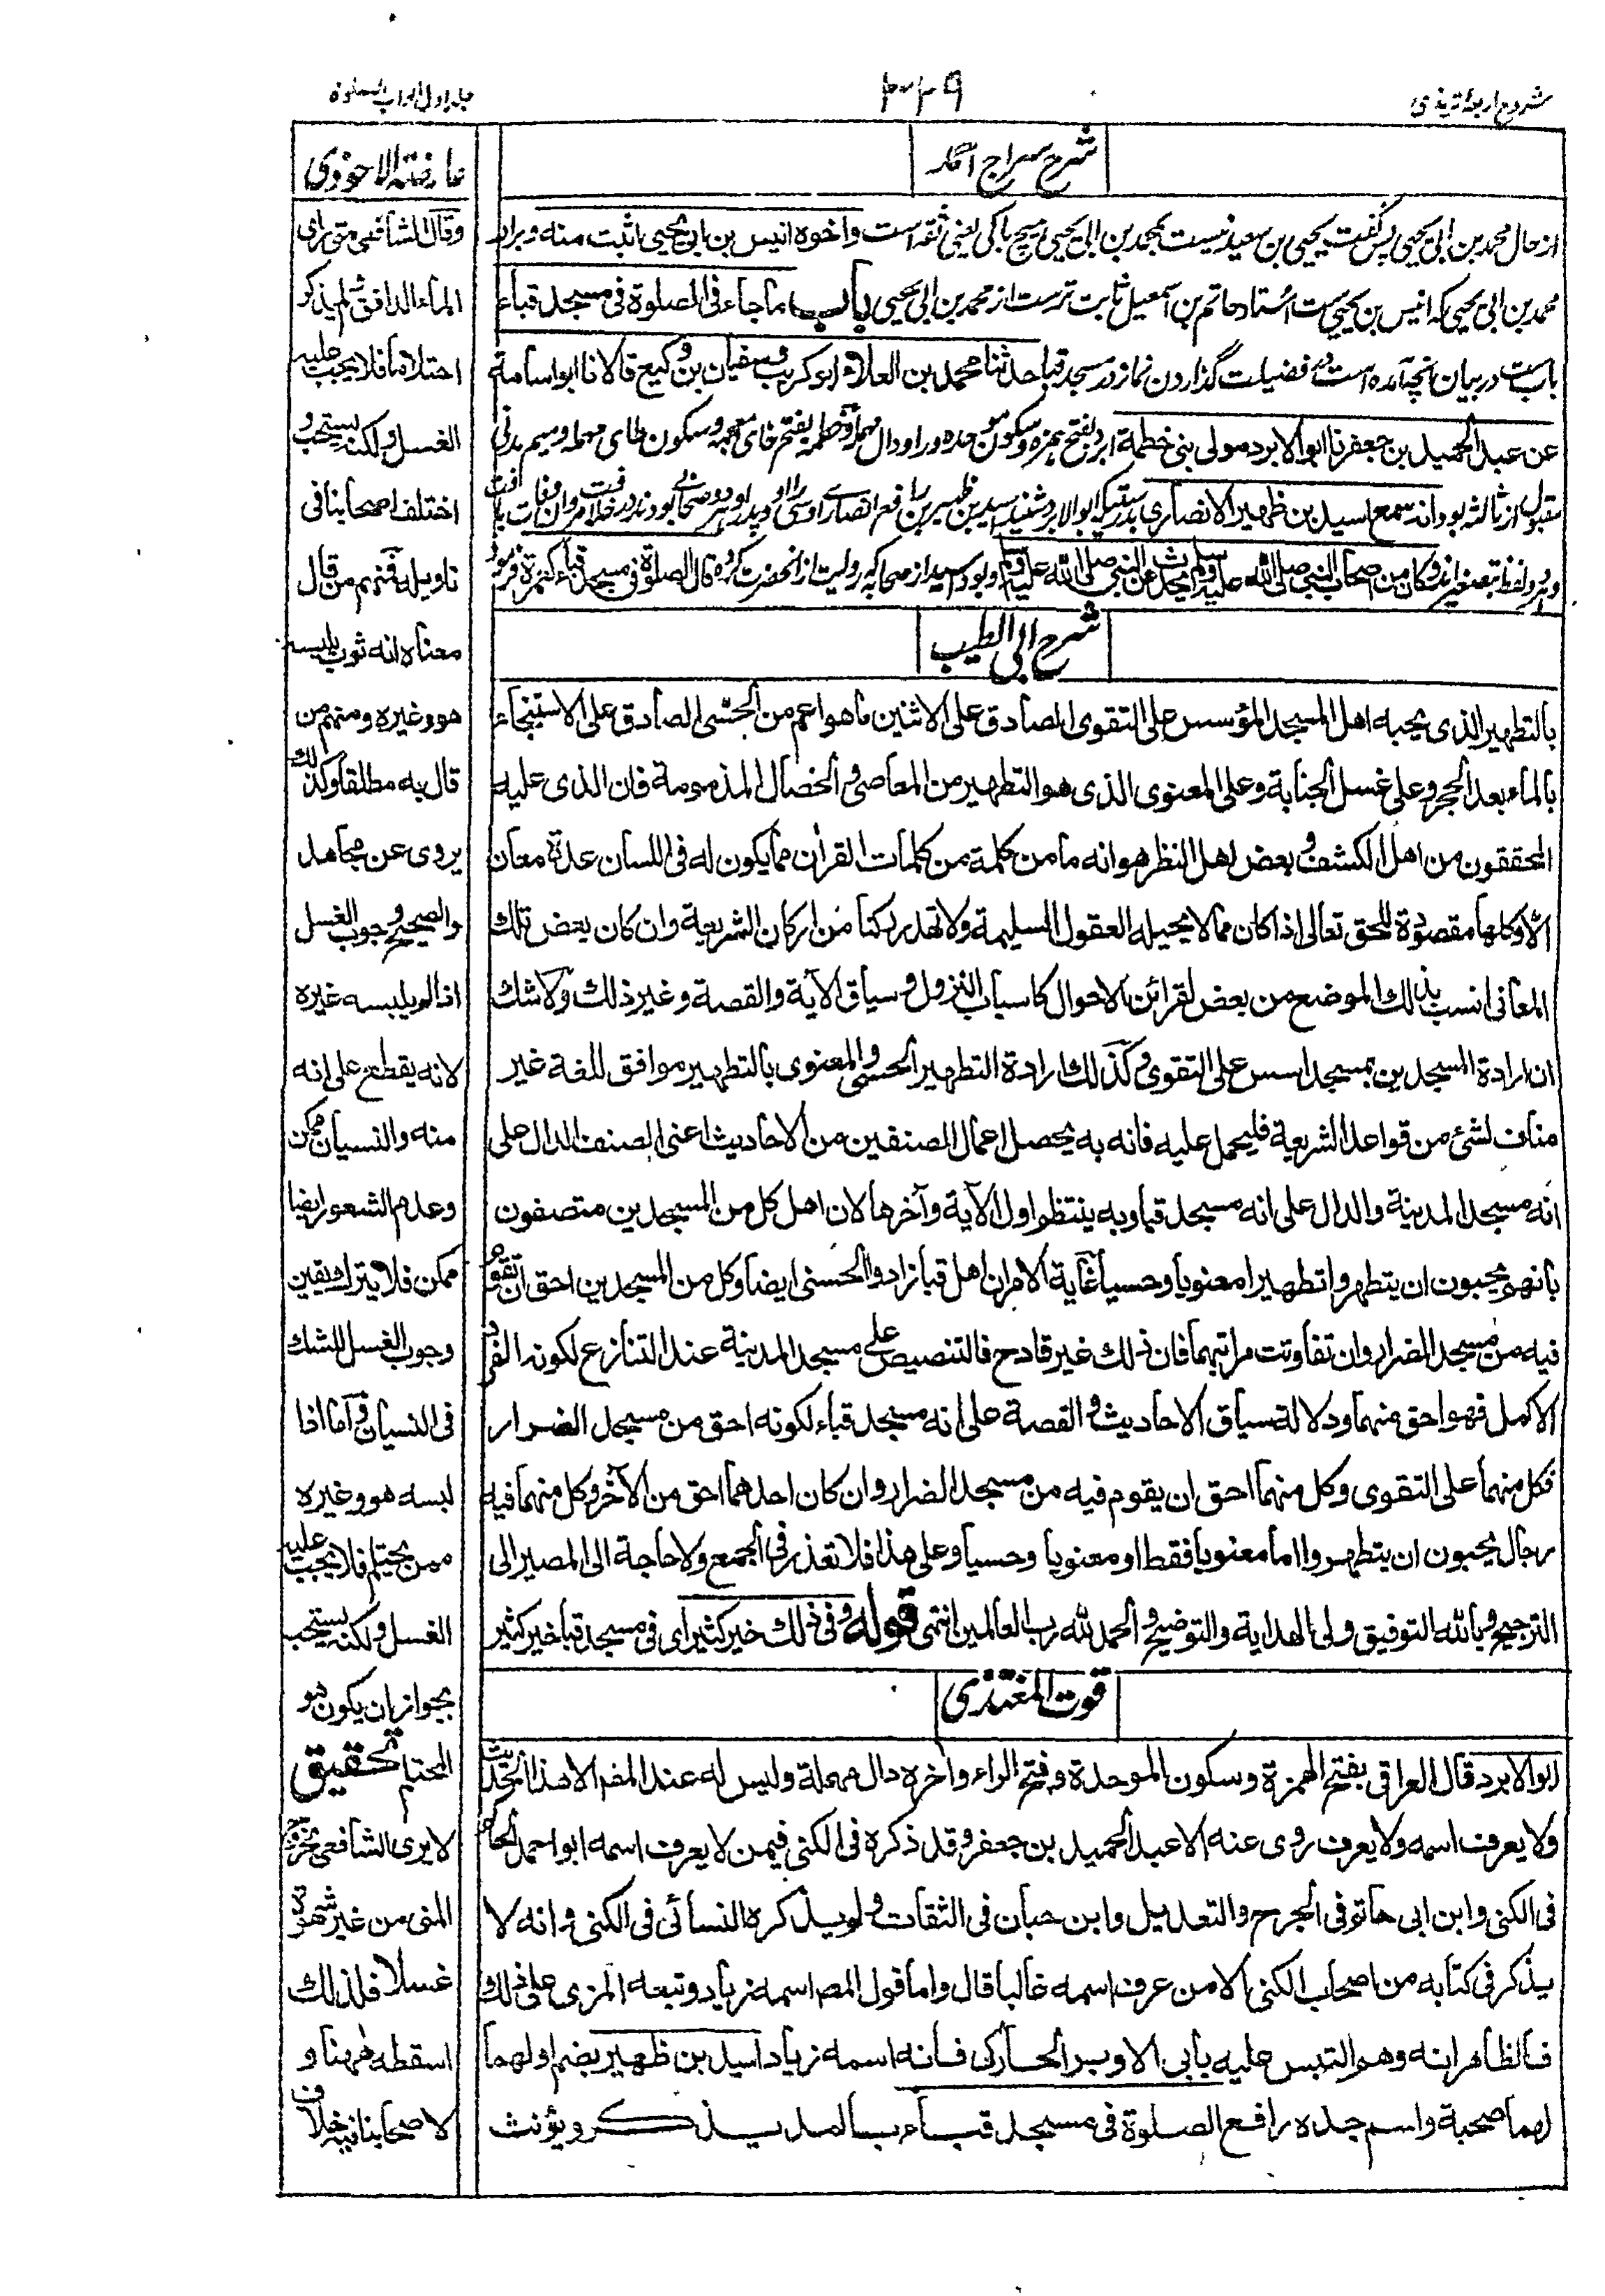 شروح اربعۂ ترمذی
۳۲۹
جلد اول ابواب الصلوة
شرح سراج احمد
از حال محمد بن ابی یحیی پس گفت یحیی بن سعید نیست بمحمد بن ابی یحیی هیچ باکی یعنی ثقه است واخوه انیس بن ابی یحیی اثبت منه وبرادر
محمد بن ابی یحیی که انیس بن یحیی ست استاد حاتم بن اسمعیل ثابت ترست از محمد بن ابی یحیی باب ما جاء فی الصلوة فی مسجد قباء
باب ست در بیان آنچه آمده است در فضیلت گذاردن نماز در مسجد قبا حدثنا محمد بن العلاء ابو کریب وسفیان بن وکیع قالا نا ابو اسامة
عن عبد الحمید بن جعفر نا ابو الابرد مولی بنی خطمة ابرد بفتح همزه وسکون موحده ورا ودال مهمله وخطمه بفتح خای معجمه وسکون طای مهمله ومیم مدنی
مقبول از ثالثه بود انه سمع اسید بن ظهیر الانصاری بدرستیکه ابو الابرد شنید اسید بن ظهیر بن رافع انصاری اوسی را او وپدر او هر دو صحابی بودند در خلافت مروان وفات یافت
وهر دو لفظ بتصغیر اند وکان من اصحاب النبی صلی الله علیه وسلم یحدث عن النبی صلی الله علیه وسلم وبود اسید از صحابه روایت از آنحضرت کرده قال الصلوة فی مسجد قباء کعمرة فرمود
شرح ابی الطیب
بالتطهير الذی یحبه اهل المسجد المؤسس علی التقوی الصادق علی الاثنین ما هو اعم من الحسی الصادق علی الاستنجاء
بالماء بعد الحجر وعلی غسل الجنابة وعلی المعنوی الذی هو التطهیر من المعاصی والخصال المذمومة فان الذی علیه
المحققون من اهل الکشف وبعض اهل النظر هو انه ما من کلمة من کلمات القرآن مما یکون له فی اللسان عدة معان
الا وکلها مقصودة للحق تعالی اذا کان مما لا یحیله العقول السلیمة ولا تهدر رکنا من ارکان الشریعة وان کان بعض تلک
المعانی انسب بذلک الموضع من بعض لقرائن الاحوال کاسباب النزول وسیاق الآیة والقصة وغیر ذلک ولا شک
ان ارادة المسجدین بمسجد اسس علی التقوی وکذلک ارادة التطهیر الحسی والمعنوی بالتطهیر موافق للغة غیر
مناف لشئ من قواعد الشریعة فلیحمل علیه فانه به یحصل اعمال الصنفین من الاحادیث اعنی الصنف الدال علی
انه مسجد المدینة والدال علی انه مسجد قبا وبه ینتظم اول الآیة وآخرها لان اهل کل من المسجدین متصفون
بانهم یحبون ان یتطهروا تطهیرا معنویا وحسیا غایة الامر ان اهل قبا زادوا الحسنی ایضا وکل من المسجدین احق ان تقوم
فیه من مسجد الضرار وان تفاوتت مراتبهما فان ذلک غیر قادح فالتنصیص علی مسجد المدینة عند التنازع لکونه الفرد
الاکمل فهو احق منهما ودلالة سیاق الاحادیث والقصة علی انه مسجد قباء لکونه احق من مسجد الضرار
فکل منهما علی التقوی وکل منهما احق ان یقوم فیه من مسجد الضرار وان کان احدهما احق من الآخر وکل منهما فیه
رجال یحبون ان یتطهروا اما معنویا فقط او معنویا وحسیا وعلی هذا فلا تعذر فی الجمع ولا حاجة الی المصیر الی
الترجیح وبالله التوفیق ولی الهدایة والتوضیح والحمد لله رب العالمین انتهی قوله وفی ذلک خیر کثیر ای فی مسجد قبا خیر کثیر
قوت المغتذی
ابو الابرد قال العراقی بفتح الهمزة وسکون الموحدة وفتح الراء وآخره دال مهملة ولیس له عند المص الا هذا الحدیث
ولا یعرف اسمه ولا یعرف روی عنه الا عبد الحمید بن جعفر وقد ذکره فی الکنی فیمن لا یعرف اسمه ابو احمد الحاکم
فی الکنی وابن ابی حاتم فی الجرح والتعدیل وابن حبان فی الثقات ولم یذکره النسائی فی الکنی وانه لا
یذکر فی کتابه من اصحاب الکنی الا من عرف اسمه غالبا قال واما قول المص اسمه زیاد وتبعه المزی علی ذلک
فالظاهر انه وهم التبس علیه بابی الاوبر الحارثی فانه اسمه زیاد اسید بن ظهیر بضم اولهما
لهما صحبة واسم جده رافع الصلوة فی مسجد قباء بالمد یذکر ویؤنث
عارضة الاحوذی
وقال الشافعی متی رای
الماء الدافق ثم لم یذکر
احتلاما فلا یجب علیه
الغسل ولکنه یستحب و
اختلف اصحابنا فی
تاویله فمنهم من قال
معناه انه ثوب یلبسه
هو وغیره ومنهم من
قال به مطلقا وکذلک
یروی عن مجاهد
والصحیح وجوب الغسل
اذا لم یلبسه غیره
لانه یقطع علی انه
منه والنسیان ممکن
وعدم الشعور ایضا
ممکن فلا یترک یقین
وجوب الغسل للشک
فی النسیان واما اذا
لبسه هو وغیره
ممن یحتلم فلا یجب علیه
الغسل ولکنه یستحب
بجواز ان یکون هو
المحتلم تحقیق
لا یری الشافعی بخروج
المنی من غیر شهوة
غسلا فلذلک
اسقطه ههنا و
لاصحابنا فیه خلاف